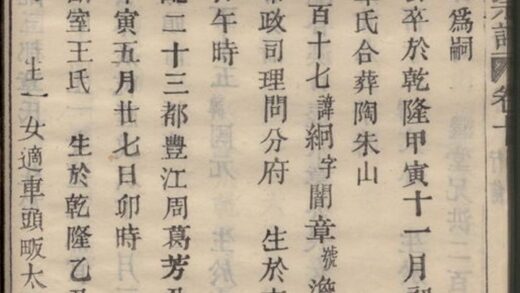 宗譜 卷十
為嗣
卒於乾隆甲寅十一月初
氏合葬陶朱山
百十七諱絅字闇章號澹
政司理問分府 生於
午時
二十三都豐江周葛芳
寅五月廿七日卯時
室王氏 生於乾隆乙
生一女適車頭畈太